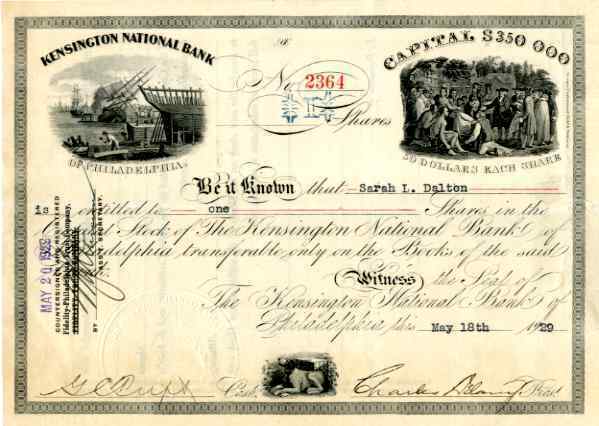 KENSINGTON NATIONAL BANK
OF PHILADELPHIA.
No. 2364
Shares
CAPITAL $350 000
50 DOLLARS EACH SHARE
Be it Known that Sarah L. Dalton
is entitled to one Shares in the
Stock of The Kensington National Bank of
transferable only on the Books of the said
Witness the Seal of
The Kensington National Bank of
Philadelphia this May 18th 1929
MAY 20 1929
COUNTERSIGNED AND REGISTERED
Fidelity-Philadelphia Trust Company,
BY
ASS'T SECRETARY.
Cash.
Charles
Prest.